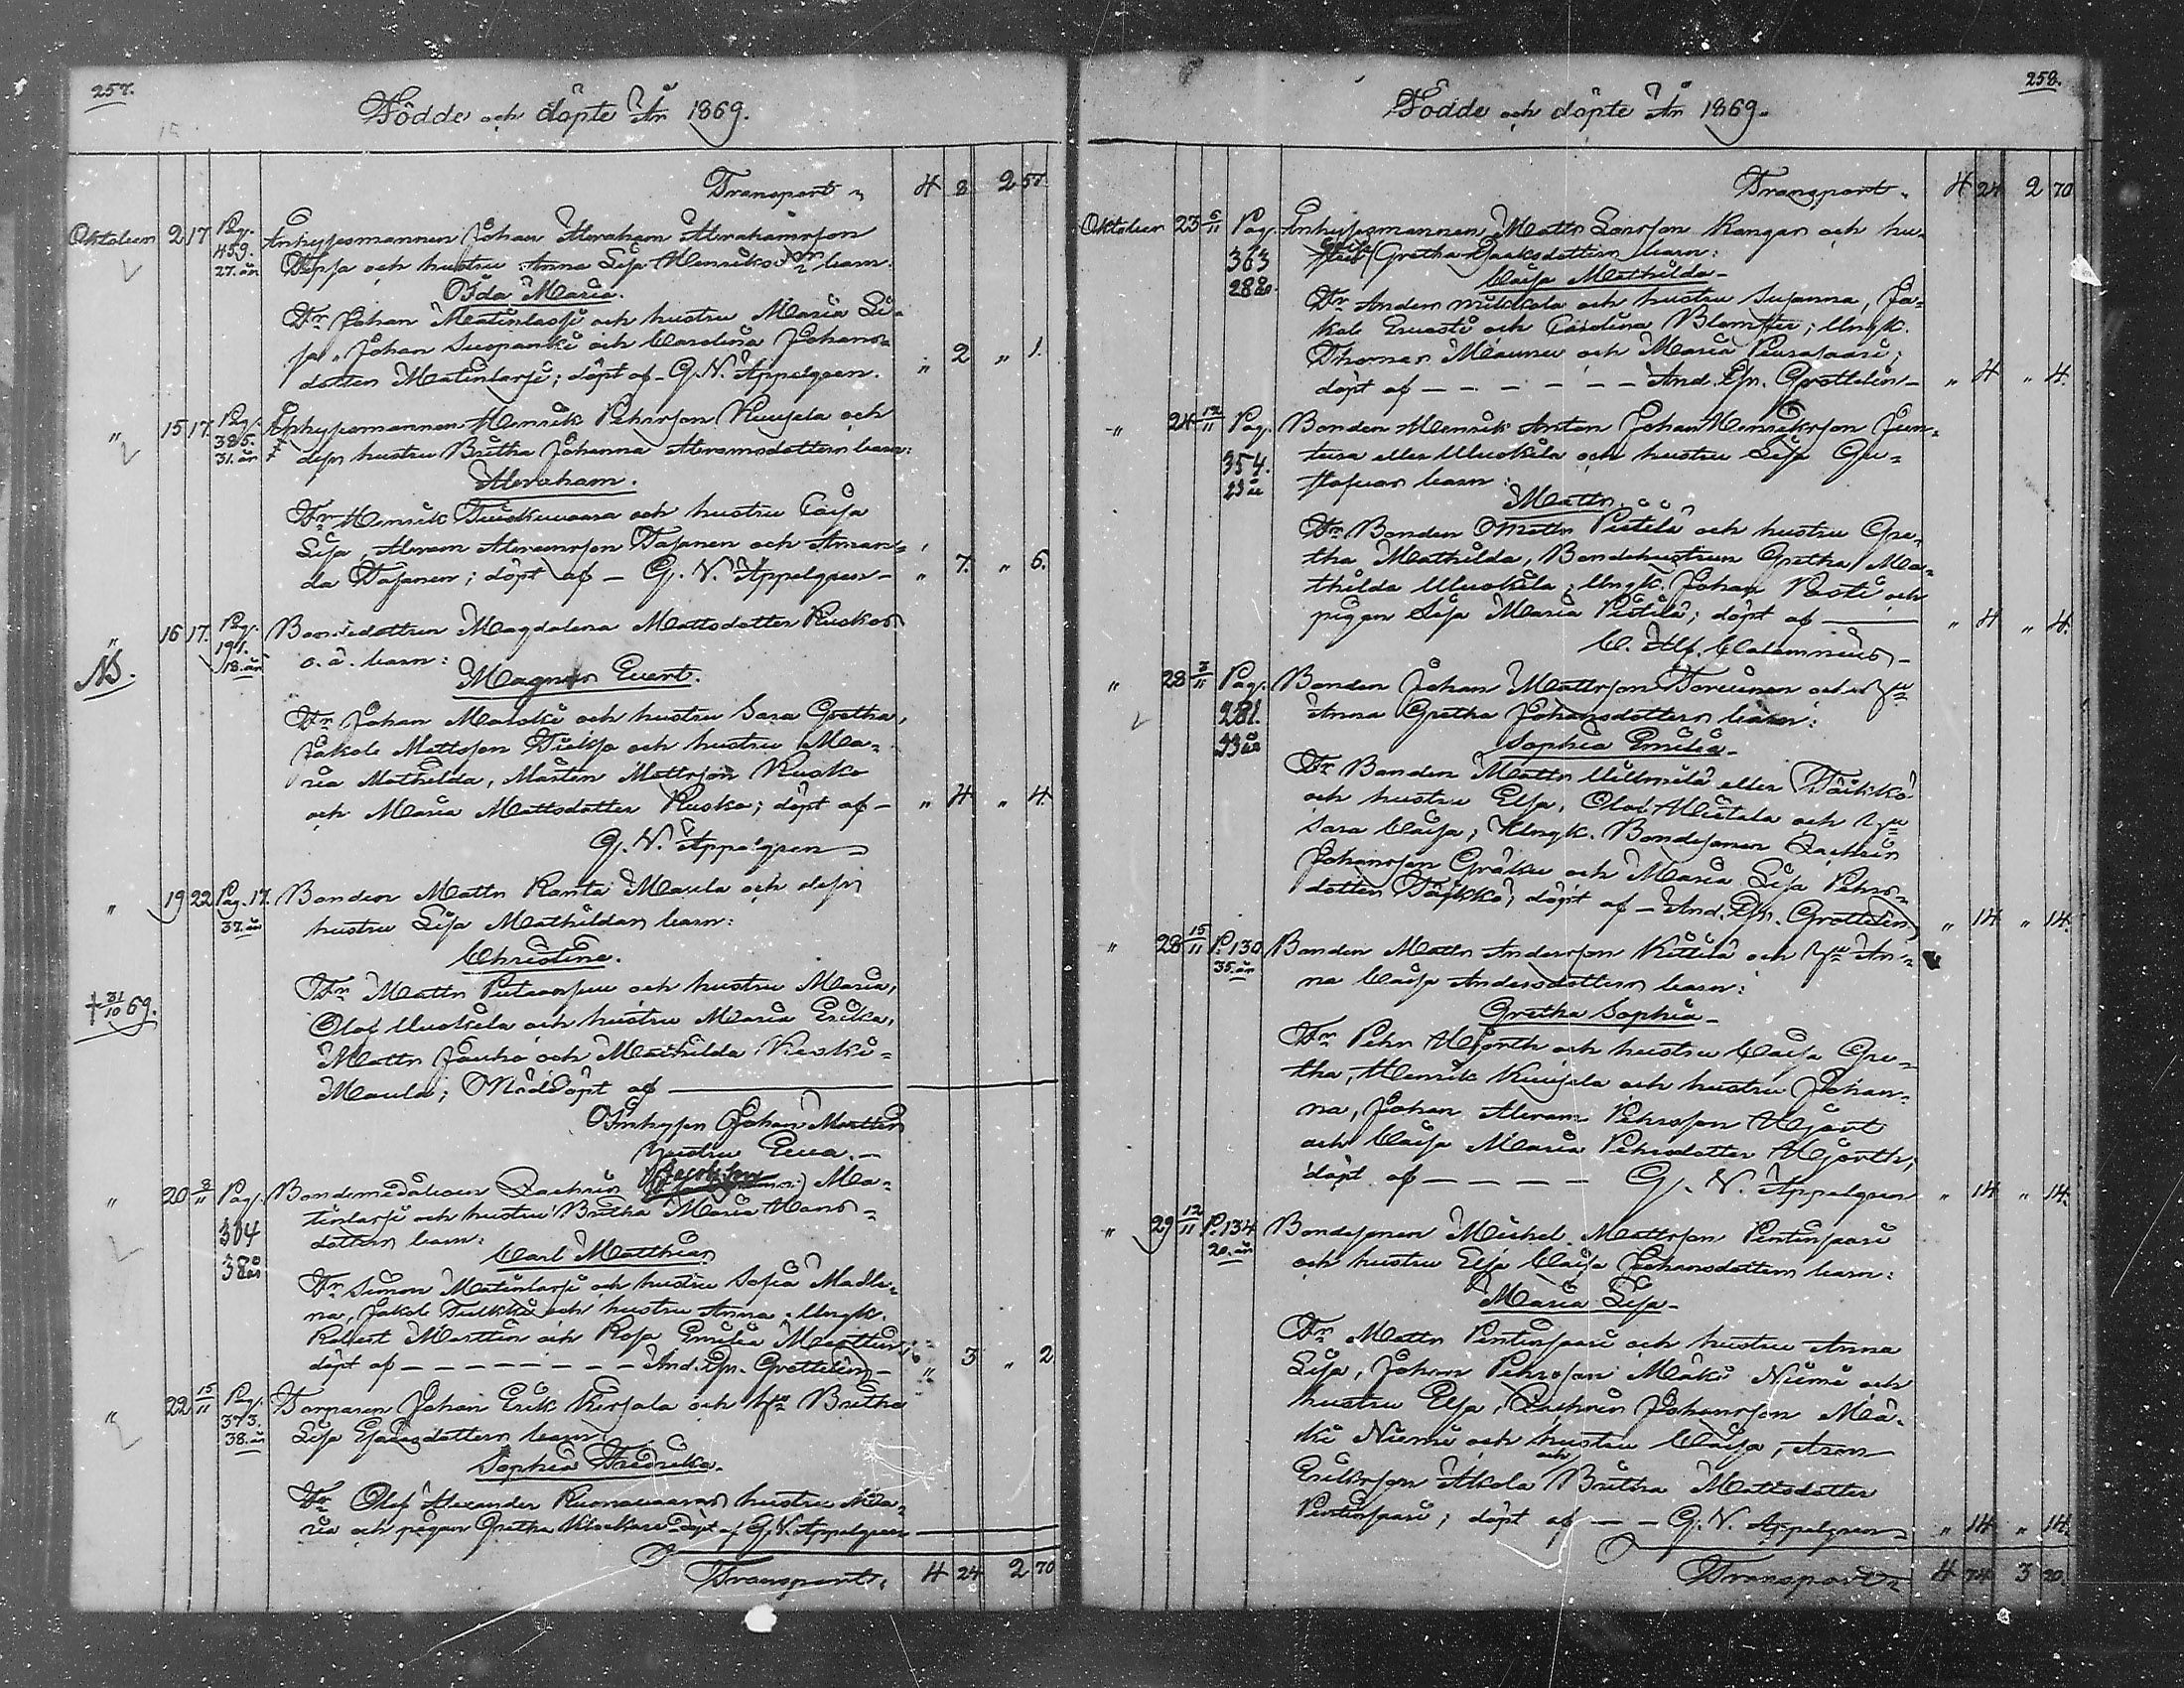 257.
Födde och döpte År 1869.
Transport „ 4 8 2 57.
Oktober 2 17 Pag. 459. 27. år Inhysesmannen Johan Abraham Abrahamsson
och hustru Anna Lisa Henriksdr barn:
Ida Maria.
Fr Johan Matinlassi och hustru Maria Li-
sa, Johan och Carolina Johans-
dotter Matinlassi; döpt af G. N. Appelgren. „ 2 „ 1.
„ 15 17. Pag. 385. 31. år Inhysesmannen Henrik Pehrsson Kuusela och
dess hustru Britha Johanna Abramsdotters barn:
Abraham.
Fr Henrik Tuiskuvaara och hustru Caisa
Lisa, Abram Abramsson Tapanen och Aman-
da Tapanen; döpt af – G. N. Appelgren – „ 7. „ 6.
„ 16 17. Pag. 191. 18. år Bondedottren Magdalena Mattsdotter Ruskos
o. ä. barn:
Magnus Evert.
Fr Johan Marski och hustru Sara Gretha,
Jakob Mattsson och hustru Ma-
ria Mathilda, Mårten Mattsson Rusko
och Maria Mattsdotter Rusko; döpt af – „ 4 „ 4.
G. N. Appelgren
„ 19 22 Pag. 17. 37. år Bonden Matts Ranta Maula och dess
hustru Lisa Mathildas barn:
Christine.
† 31/10 69.
Fr Matts och hustru Maria,
Olof Uuskila och hustru Maria Erika,
Matts Jauho och Mathilda Keski-
Maula; Nöddöpt af
Inhyses Johan Martins
hustru Eva. –
„ 20 8/11 Pag. 304 38 år Bondemedåboen Zachris Jacobsson Ma-
tinlassi och hustru Britha Maria Hans-
dotters barn:
Carl Matthias
Fr Simon Matinlassi och hustru Sofia Madle-
na, Jakob Tulkki och hustru Anna, Ungk.
Robert Marttin och Rosa Emilia Marttin;
döpt af – – – – – – – And. Joh. Grottelin – „ 3 „ 2
„ 22 15/11 Pag. 373. 38. år Torparen Johan Erik Kirjala och hu Britha
Lisa Esaiasdotters barn:
Sophia Fredrika.
Fr Olof Alexander Ruonavaaras hustru Ma-
ria och pigan Gretha döpt af G. N. Appelgren
Transport. 4 24 2 70
258.
Födde och döpte År 1869.
Transport. 4 24 2 70
Oktober 23 6/11 Pag. 363 28 år. Inhysesmannen Matts Larsson Kangas och hu-
Gretha Isaksdotters barn:
Caisa Mathilda –
Fr Anders Mikkola och hustru Susanna, Ja-
kob och Carolina Blomster; Ungk.
Thomas Maunu och Maria Peurasaari;
döpt af – – – – – – And. Joh. Grottelin – „ 4 „ 4.
„ 24 12/11 Pag. 354. 23 år Bonden Henrik Anton Johan Henriksson Jun-
tura eller Uuskila och hustru Lisa Gu-
stafvas barn:
Matts.
Fr Bonden Matts Pietilä och hustru Gre-
tha Mathilda, Bondehustrun Gretha Ma-
thilda Uuskila; Ungk. Johan Posti och
pigan Lisa Maria Pietilä; döpt af „ 4 „ 4.
C. Alf. Calamnius –
„ 28 7/11 Pag. 281. 33 år Bonden Johan Mattsson Torvinen och hu
Anna Gretha Johansdotters barn:
Sophia Emilia –
Fr Bonden Matts eller Täikkö
och hustru Elsa, Olof Alatalo och hu
Sara Caisa; Ungk. Bondesonen Zachris
Johansson och Maria Lisa Pehrs-
dotter Täikkö; döpt af – And. Joh. Grottelin. „ 14 „ 14.
„ 28 15/11 P. 130 35. år Bonden Matts Andersson Kittilä och hu An-
na Caisa Andersdotters barn:
Gretha Sophia –
Fr Pehr Hjorth och hustru Caisa Gre-
tha, Henrik Kuusela och hustru Johan-
na, Johan Abram Pehrsson Hjort
och Caisa Maria Pehrsdotter Hjorth;
döpt af – – – – G. N. Appelgren „ 14 „ 14.
„ 29 12/11 P. 134 20. år Bondesonen Michel Mattsson Pentinsaari
och hustru Elsa Caisa Johansdotters barn:
Maria Lisa –
Fr Matts Pentinsaari och hustru Anna
Lisa, Johan Pehrsson Mäki Niemi och
hustru Elsa, Zachris Johansson Mä-
ki Niemi och hustru Caisa, Aron
Eriksson Akola och Britha Mattsdotter
Pentinsaari; döpt af – – G. N. Appelgren „ 14 „ 14.
Transport 4 74 3 20.